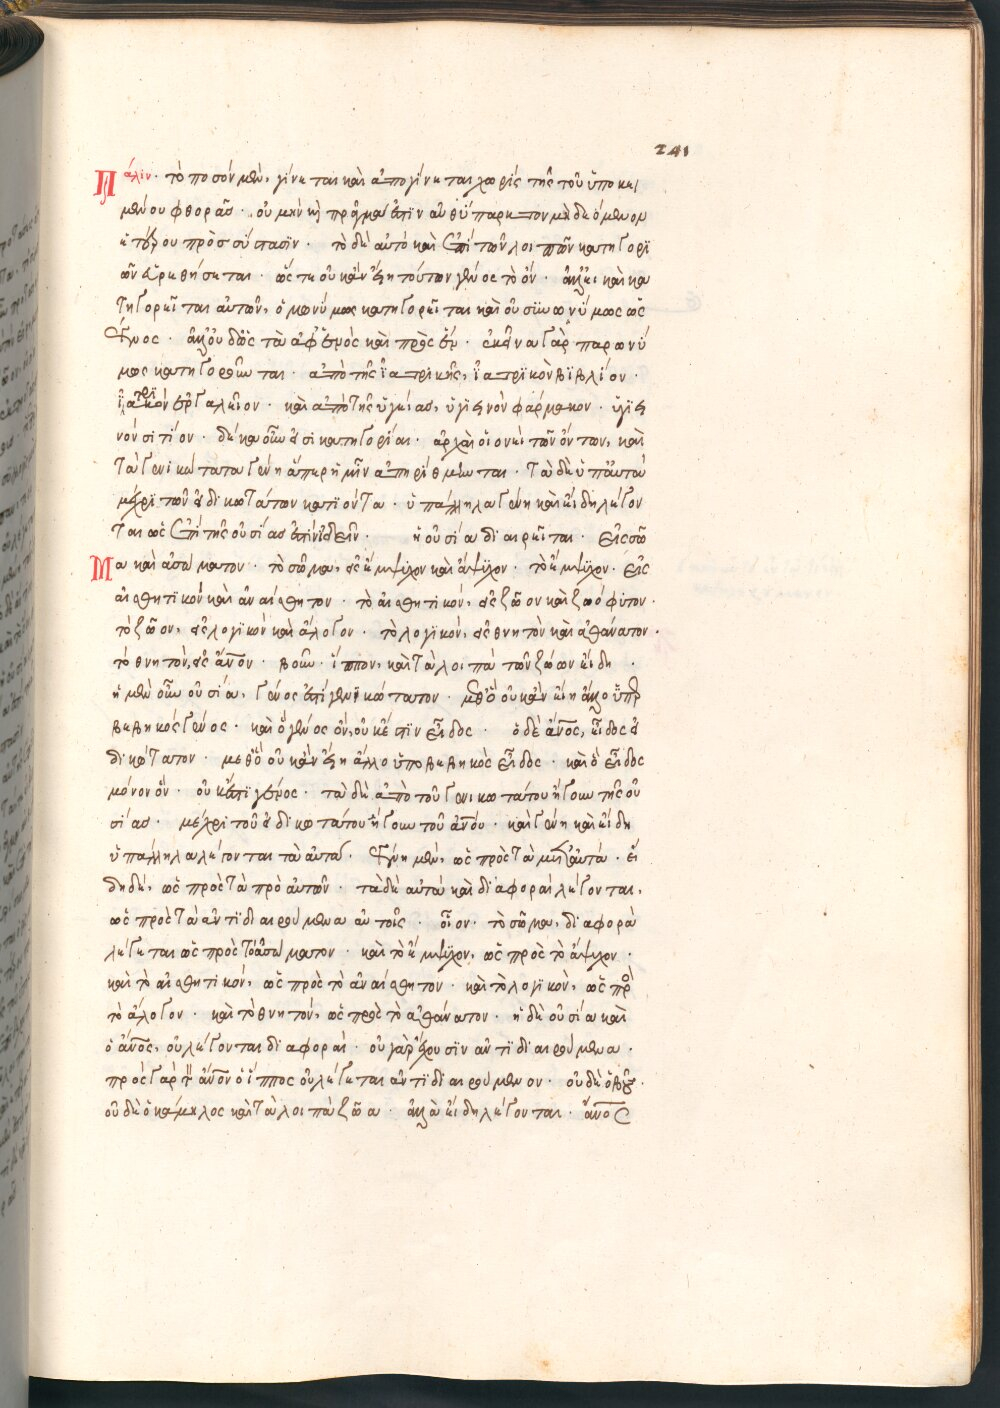 241
Πάλιν· τὸ ποσὸν μὲν, γίνεται καὶ ἀπογίνεται χωρὶς τῆς τοῦ ὑποκει
μένου φθορᾶς· οὐ μὴν καὶ πρᾶγμά ἐστιν αὐθύπαρκτον μὴ δεόμενον
ἑτέρου πρὸς σύστασιν· τὸ δὲ αὐτὸ καὶ ἐπὶ τῶν λοιπῶν κατηγορϊ
ῶν εὑρεθήσεται· ὥστε οὐκ ἂν εἴη τούτων γένος τὸ ὄν· ἀλλ' εἰ καὶ κα
τηγορεῖται αὐτῶν, ὁμωνύμως κατηγορεῖται καὶ οὐ συνωνύμως ὡς
γένος· ἀλλ' οὐδ' ὡς τὰ ἀφ' ἑνὸς καὶ πρὸς ἕν· ἐκεῖνα γὰρ παρωνύ
μως κατηγοροῦνται· ἀπὸ τῆς ἰατρικῆς, ἰατρικὸν βιβλίον·
ἰατρικὸν ἐργαλεῖον· καὶ ἀπὸ τῆς ὑγείας, ὑγιεινὸν φάρμακον· ὑγιει
νὸν σιτίον· δέκα οὖν εἰσὶ κατηγορίαι· ἀρχαὶ οἱονεὶ τῶν ὄντων, καὶ
τὰ γενικώτατα γένη ἅπερ ἡμῖν ἀπηρίθμηνται· τὰ δὲ ὑπὸ ταῦτα
μέχρι τῶν εἰδικωτάτων κατϊόντα· ὑπάλληλα γένη καὶ εἴδη λέγον
ται ὡς ἐπὶ τῆς οὐσίας ἐστὶν ἰδεῖν· ἡ οὐσία διαιρεῖται· εἰς σῶ
Μα καὶ ἀσώματον· τὸ σῶμα, εἰς ἔμψυχον καὶ ἄψυχον· τὸ ἔμψυχον· εἰς
αἰσθητικὸν καὶ ἀναίσθητον· τὸ αἰσθητικὸν, εἰς ζῶον καὶ ζωόφυτον·
τὸ ζῶον, εἰς λογικὸν καὶ ἄλογον· τὸ λογικὸν, εἰς θνητὸν καὶ ἀθάνατον·
τὸ θνητὸν, εἰς ἄνον· βοῦν· ἵππον, καὶ τὰ λοιπὰ τῶν ζώων εἴδη·
ἡ μὲν οὖν οὐσία, γένος ἐστὶ γενικώτατον· μεθ' ὃ οὐκ ἂν εἴη ἄλλο ὑπερ
βεβηκὸς γένος· καὶ ὃ γένος ὂν, οὐκ ἔστιν εἶδος· ὁ δὲ ἄνος, εἶδος εἰ
δικώτατον· μεθ' ὃ οὐκ ἂν εἴη ἄλλο ὑποβεβηκὸς εἶδος· καὶ ὃ εἶδος
μόνον ὂν· οὐκ ἔστι γένος· τὰ δὲ ἀπὸ τοῦ γενικωτάτου ἤγουν τῆς οὐ
σίας· μέχρι τοῦ εἰδικωτάτου ἤγουν τοῦ ἀνου· καὶ γένη καὶ εἴδη
ὑπάλληλα λέγονται τὰ αὐτά· γένη μὲν, ὡς πρὸς τὰ μετ' αὐτά· εἴ
δη δὲ, ὡς πρὸς τὰ πρὸ αὐτῶν· τὰ δὲ αὐτὰ καὶ διαφοραὶ λέγονται,
ὡς πρὸς τὰ ἀντιδιαιρούμενα αὐτοῖς· οἷον· τὸ σῶμα, διαφορὰ
λέγεται ὡς πρὸς τὸ ἀσώματον· καὶ τὸ ἔμψυχον, ὡς πρὸς τὸ ἄψυχον·
καὶ τὸ αἰσθητικὸν, ὡς πρὸς τὸ ἀναίσθητον· καὶ τὸ λογικὸν, ὡς πρὸς
τὸ ἄλογον· καὶ τὸ θνητὸν, ὡς πρὸς τὸ ἀθάνατον· ἡ δὲ οὐσία καὶ
ὁ ἄνος, οὐ λέγονται διαφοραὶ· οὐ γὰρ ἔχουσιν ἀντιδιαιρούμενα·
πρὸς γὰρ τὸν ἄνον ὁ ἵππος οὐ λέγεται ἀντιδιαιρούμενον· οὐδὲ ὁ βοῦς·
οὐδὲ ὁ κάμηλος καὶ τὰ λοιπὰ ζῶα· ἀλλὰ εἴδη λέγονται· ἄνος